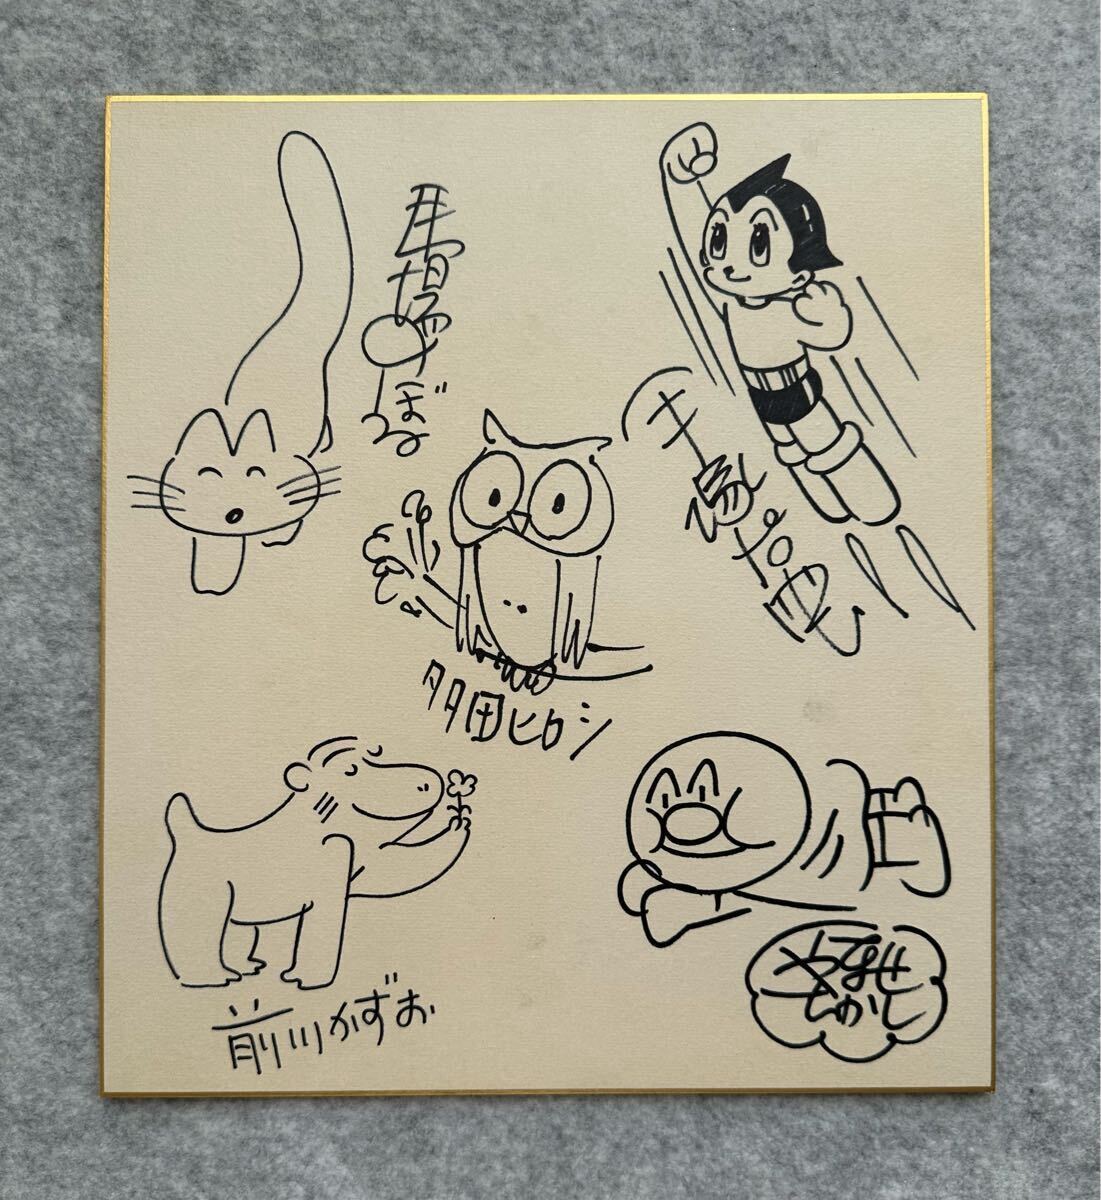 馬場のぼる
手塚治虫
多田ヒロシ
前川かずお
やなせ
たかし